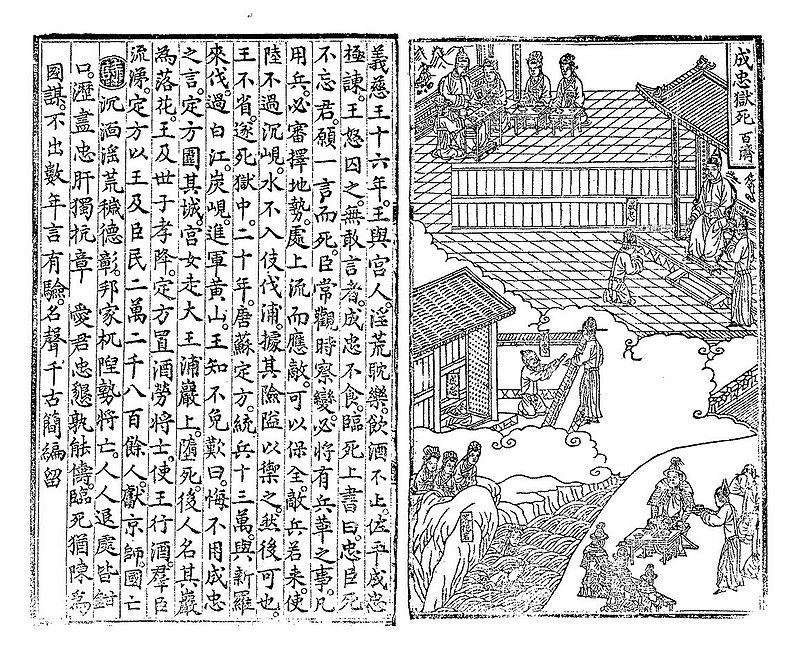 成忠獄死 百濟
成忠
義慈王十六年。王與宮人。淫荒耽樂。飲酒不止。佐平成忠
極諫。王怒囚之。無敢言者。成忠不食。臨死上書曰。忠臣死
不忘君。願一言而死。臣常觀時察變。必將有兵革之事。凡
用兵。必審擇地勢。處上流而應敵。可以保全。敵兵若来。使
陸不過沉峴。水不入伎伐浦。據其險隘以禦之。然後可也。
王不省。遂死獄中。二十年。唐蘇定方。統兵十三萬。與新羅
來伐。過白江。炭峴。進軍黃山。王知不免歎曰。悔不用成忠
之言。定方圍其城。宮女走大王浦巖上。墮死。後人名其巖
為落花。王及世子孝降。定方置酒勞將士。使王行酒。群臣
流涕。定方以王及臣民二萬二千八百餘人。獻京師。國亡
詩 沉湎淫荒穢德彰。邦家杌隉勢將亡。人人退處皆鉗
口。瀝盡忠肝獨抗章 愛君忠懇孰能儔。臨死猶陳為
國謀。不出數年言有驗。名聲千古簡編留